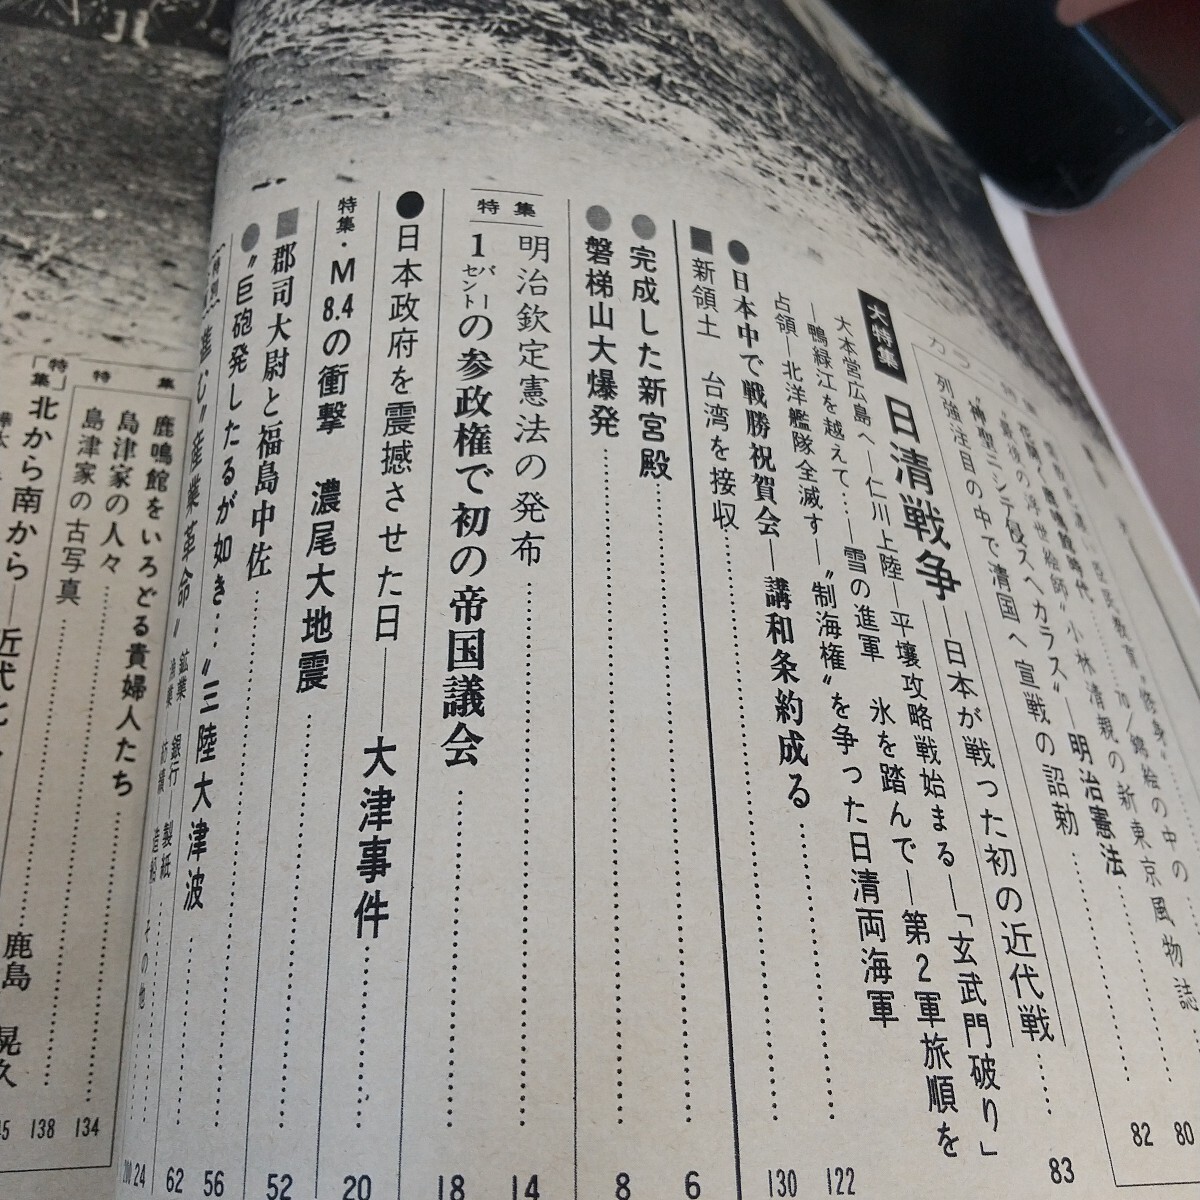 臣民教育“修身”
70/錦絵の中の
80
“最後の浮世絵師”小林清親の新東京風物誌
花開く鹿鳴館時代
明治憲法
82
列強注目の中で清国へ宣戦の詔勅
大特集
日清戦争―日本が戦った初の近代戦
83
大本営広島へ―仁川上陸―平壌攻略戦始まる―「玄武門破り」
―鴨緑江を越えて…―雪の進軍 氷を踏んで―第2軍旅順を
占領―北洋艦隊全滅す―“制海権”を争った日清両海軍
●日本中で戦勝祝賀会―講和条約成る
122
■新領土 台湾を接収
130
●完成した新宮殿
6
●磐梯山大爆発
8
特集
明治欽定憲法の発布
14
1パーセントの参政権で初の帝国議会
18
●日本政府を震撼させた日―大津事件
20
特集・M8.4の衝撃 濃尾大地震
52
■郡司大尉と福島中佐
56
●“巨砲発したるが如き…”三陸大津波
62
進む“産業革命”
鉱業 銀行 製紙 その他
紡績 造船
24
特集
鹿鳴館をいろどる貴婦人たち
島津家の人々
134
島津家の古写真
138
「特集」北から南から―近代
鹿島 晃久